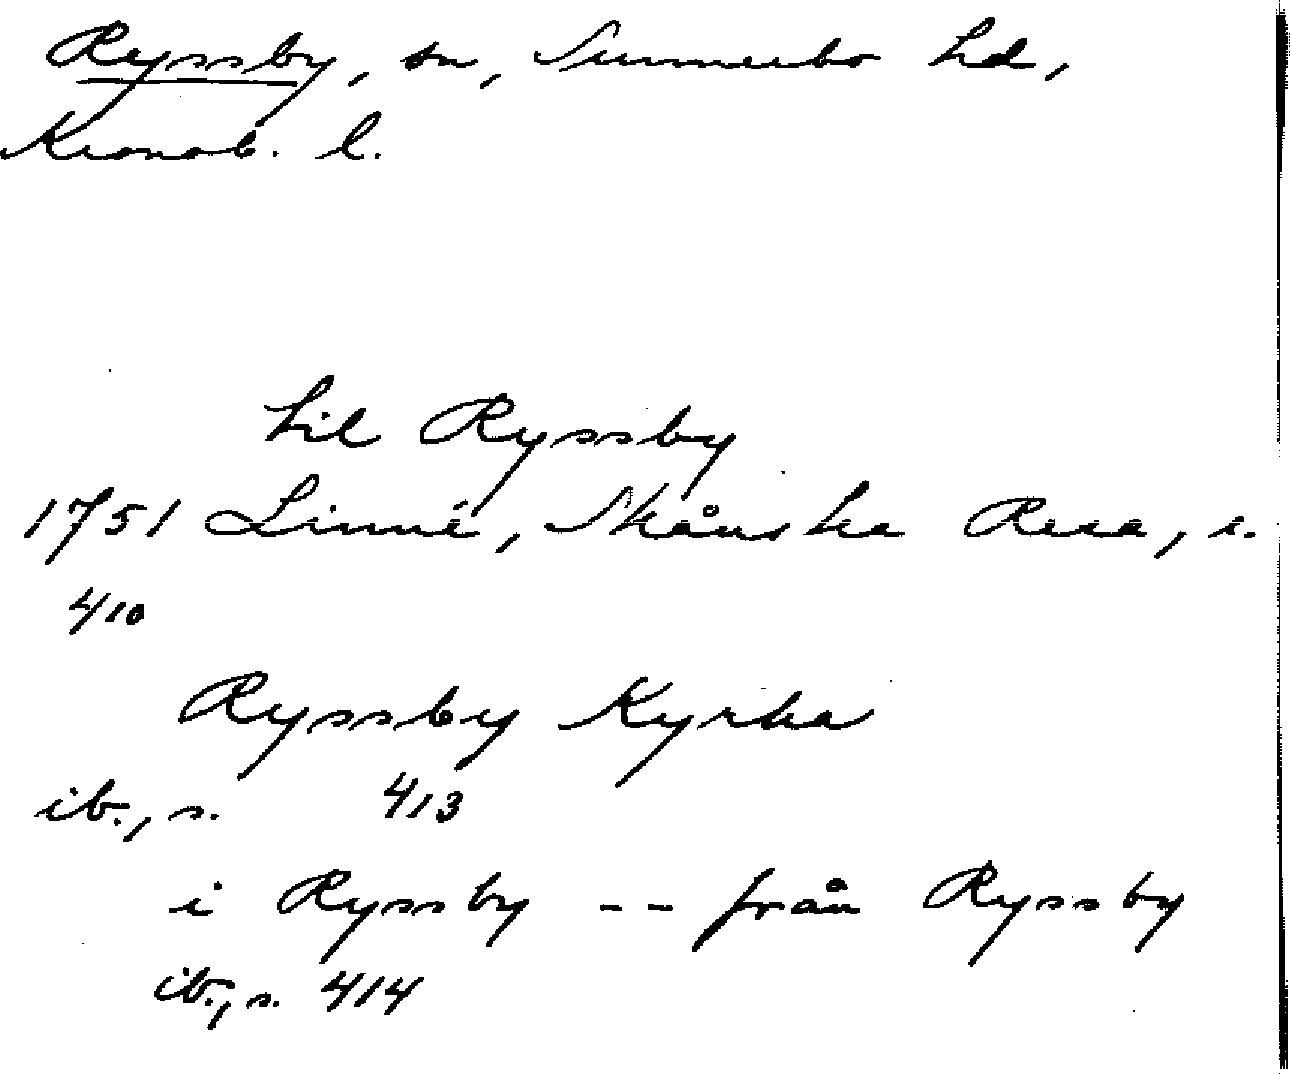 Ryssby, sn, Sunnerbo hd,
Kronob. l.
til Ryssby
1751 Linné, Skånska Resa, s.
410
Ryssby Kyrka
ib., s. 413
i Ryssby -- från Ryssby
ib., s. 414